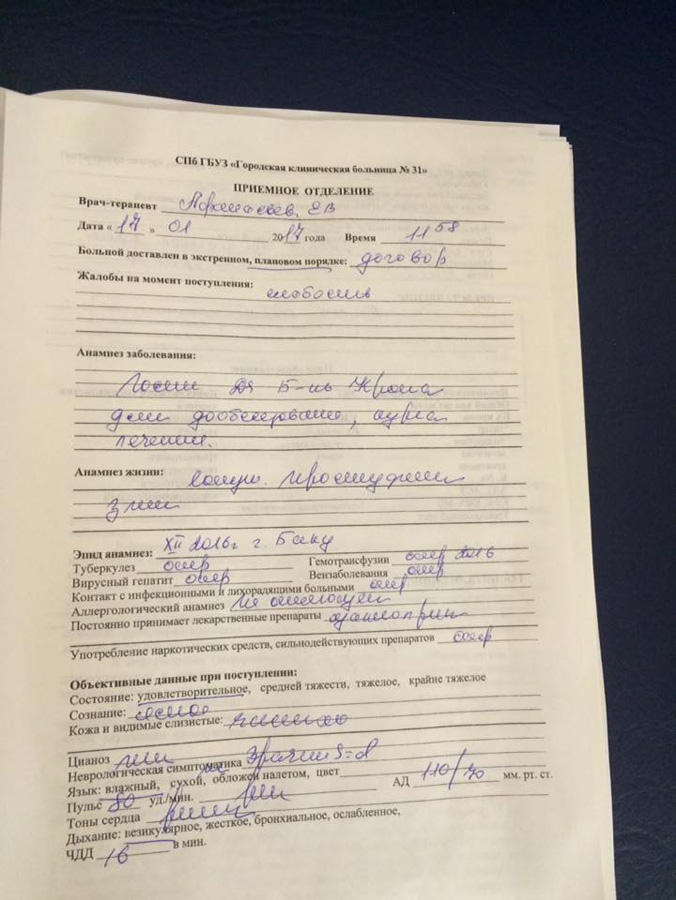 СПб ГБУЗ «Городская клиническая больница № 31»
ПРИЕМНОЕ ОТДЕЛЕНИЕ
Врач-терапевт ЕВ
Дата « 17 » 01 2017 года Время 11 58
Больной доставлен в экстренном, плановом порядке: договор
Жалобы на момент поступления:
слабость
Анамнез заболевания:
Госпит Ds Б-нь Крона
для дообследования, курса
лечения.
Анамнез жизни:
Эпид анамнез: XII 2016г г. Баку
Туберкулез отр Гемотрансфузии отр 2016
Вирусный гепатит отр Венззаболевания отр
Контакт с инфекционными и лихорадящими больными отр
Аллергологический анамнез не отягощен
Постоянно принимает лекарственные препараты
Употребление наркотических средств, сильнодействующих препаратов отр
Объективные данные при поступлении:
Состояние: удовлетворительное, средней тяжести, тяжелое, крайне тяжелое
Сознание: ясное
Кожа и видимые слизистые:
Цианоз
Неврологическая симптоматика зрачки S=d
Язык: влажный, сухой, обложен налетом, цвет
Пульс 80 уд/мин. АД 110/70 мм. рт. ст.
Тоны сердца
Дыхание: везикулярное, жесткое, бронхиальное, ослабленное,
ЧДД 16 в мин.